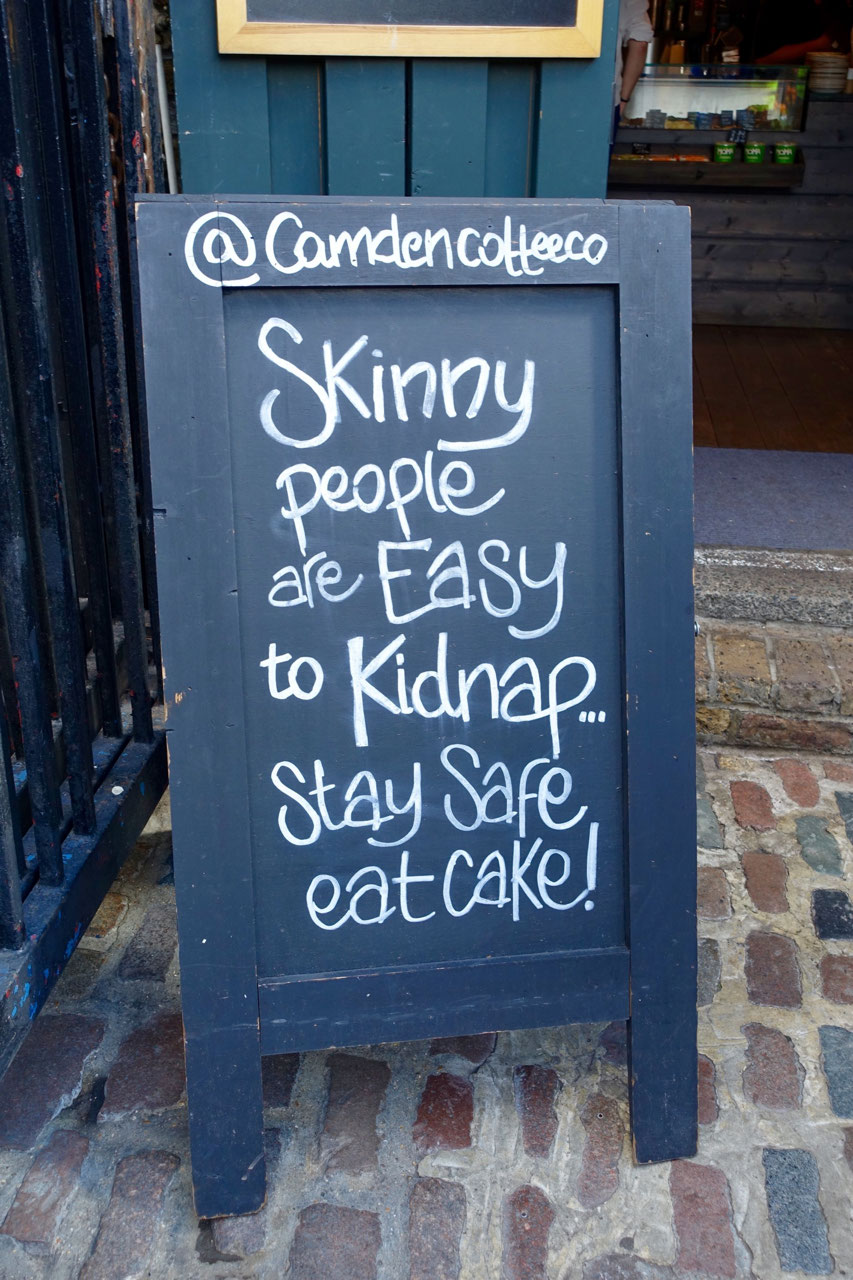 @Camdencoffeeco
Skinny
people
are Easy
to Kidnap...
Stay Safe
eat cake!